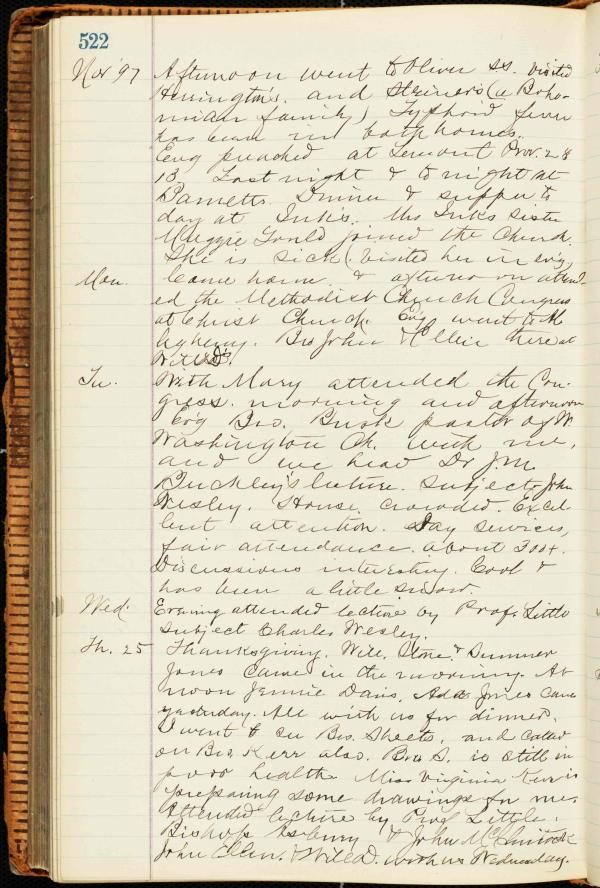 522
Nov '97 Afternoon went to Oliver S.S. visited
Herrington's. and Steiner's (a Bohe-
mian family) Typhoid fever
has been in both homes.
Evg preached at Lemont Prov. 28
13. Last night & to night at
Dinner & supper to
day at Ink's. Mrs Ink's sister
Maggie joined the Church.
She is sick (visited her in evng.
Mon. Came home & afternoon attend-
ed the Methodist Church Congress
at Christ Church. Evg went to Al-
legheny. Bro John & Ellen there at
Will D's.
Tu. With Mary attended the Con-
gress. morning and afternoon
Ev'g Bro. Bush pastor of W.
Washington Ch. with me,
and we hear Dr J.M.
Buckley's lecture. Subject John
Wesley. House crowded. Excel-
lent attention. Day services,
fair attendance. about 300+.
Discussions interesting. Cool &
has been a little snow.
Wed. Evening attended lecture by Prof. Little
Subject Charles Wesley.
Th. 25 Thanksgiving. Will, Stone & Sumner
Jones came in the morning. At
noon Jennie Davis. Ada Jones came
yesterday. All with us for dinner.
I went to see Bro. Sheets, and called
on Bro. Kerr also. Bro S. is still in
poor health. Miss Virginia Kerr is
preparing some drawings for me.
Attended lecture by Prof Little.
Bishop Asbury & John McClintock
John Ellen & Will D. with us Wednesday.